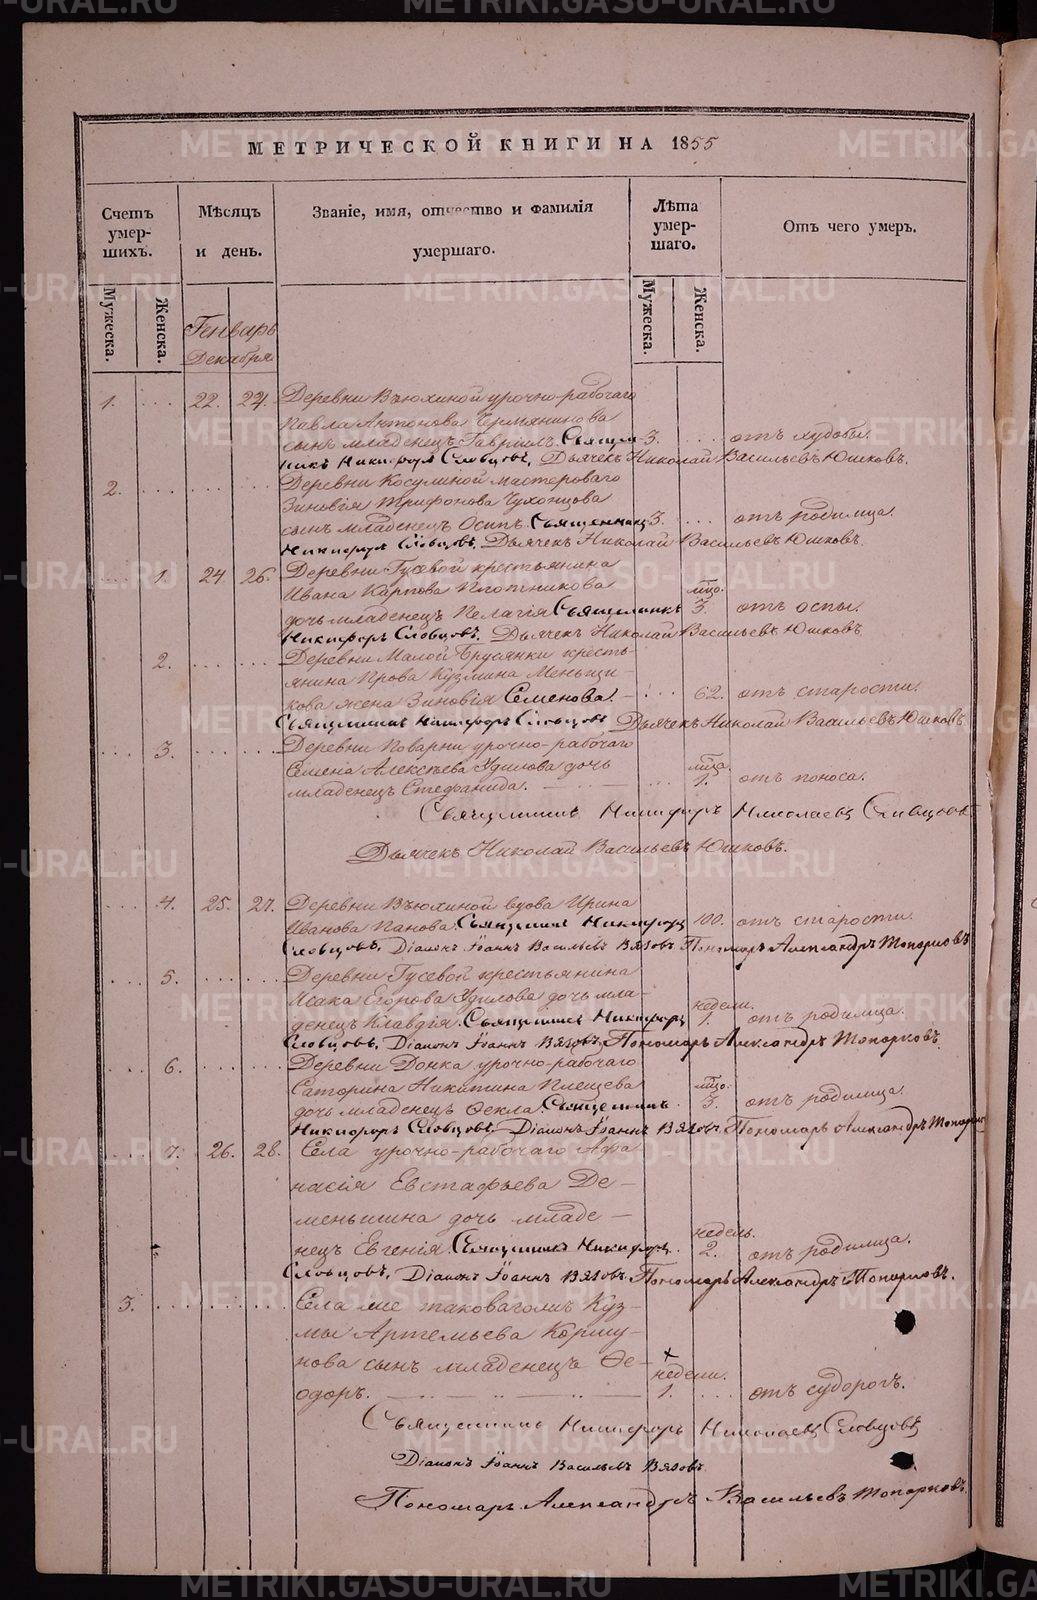 МЕТРИЧЕСКОЙ КНИГИ НА 1855
Счетъ умер-шихъ.
Мѣсяцъ и день.
Званіе, имя, отчество и фамилія умершаго.
Лѣта умер-шаго.
Отъ чего умеръ.
Мужеска.
Женска.
Мужеска.
Женска.
Генварь
Декабря
1. 22. 22. Деревни Вьюхиной урочно-рабочаго
Павла Антонова Чермянинова
сынъ младенецъ Гавріилъ. Священ- 3. отъ худобы.
никъ Никифоръ Словцовъ. Дьячекъ Николай Васильевъ Юшковъ.
2. Деревни Косулиной мастероваго
Зиновія Трифонова Чухонцова
сынъ младенецъ Осипъ. Священникъ 3. отъ родимца.
Никифоръ Словцовъ. Дьячекъ Николай Васильевъ Юшковъ.
1. 24 26. Деревни Гусевой крестьянина
Ивана Карпова Плотникова
дочь младенецъ Пелагія. Священникъ 3. отъ оспы.
Никифоръ Словцовъ. Дьячекъ Николай Васильевъ Юшковъ.
2. Деревни Малой Брусянки кресть-
янина Прова Кузмина Меньщи-
кова жена Зиновія Семенова. 62. отъ старости.
Священникъ Никифоръ Словцовъ Дьячекъ Николай Васильевъ Юшковъ
3. Деревни Поварни урочно-рабочаго
Семена Алексѣева Удилова дочь
младенецъ Стефанида. 1. отъ поноса.
Священникъ Никифоръ Николаевъ Словцовъ
Дьячекъ Николай Васильевъ Юшковъ.
4. 25. 27. Деревни Вьюхиной вдова Ирина
Иванова Панова. Священникъ Никифоръ 100. отъ старости.
Словцовъ. Діаконъ Іоаннъ Васильевъ Вязовъ Пономарь Александръ Топорковъ
5. Деревни Гусевой крестьянина
Исака Егорова Удилова дочь мла-
недели.
денецъ Клавдія. Священникъ Никифоръ 1. отъ родимца.
Словцовъ. Діаконъ Іоаннъ Вязовъ. Пономарь Александръ Топорковъ.
6. Деревни Донка урочно-рабочаго
Никитина Плещева
дочь младенецъ Ѳекла. Священникъ 3. отъ родимца.
Никифоръ Словцовъ. Діаконъ Іоаннъ Вязовъ. Пономарь Александръ Топорковъ
7. 26. 28. Села урочно-рабочаго Афа-
насія Евстафьева Де-
меньшина дочь младе-
недель.
нецъ Евгенія. Священникъ Никифоръ 2. отъ родимца.
Словцовъ. Діаконъ Іоаннъ Вязовъ. Пономарь Александръ Топорковъ.
3. Села же таковагожъ Куз-
мы Артемьева Коршу-
нова сынъ младенецъ Ѳе-
недели.
одоръ. 1. отъ судорогъ.
Священникъ Никифоръ Николаевъ Словцовъ
Діаконъ Іоаннъ Васильевъ Вязовъ
Пономарь Александръ Васильевъ Топорковъ.
METRIKI.GASO-URAL.RU